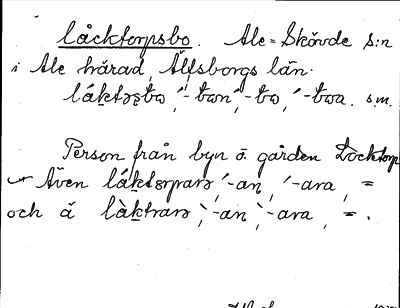 låcktorpsbo. Ale-Skövde s:n
i Ale härad, Älfsborgs län.
låktəsbo, ´-bɷn, ´-bɷ, ´-bɷa. s.m.
Person från byn o. gården Locktorp
Även låktərpaɹə, ´-an, ´-ara, =
och å làktraɹə, `-an, `-ara, =.